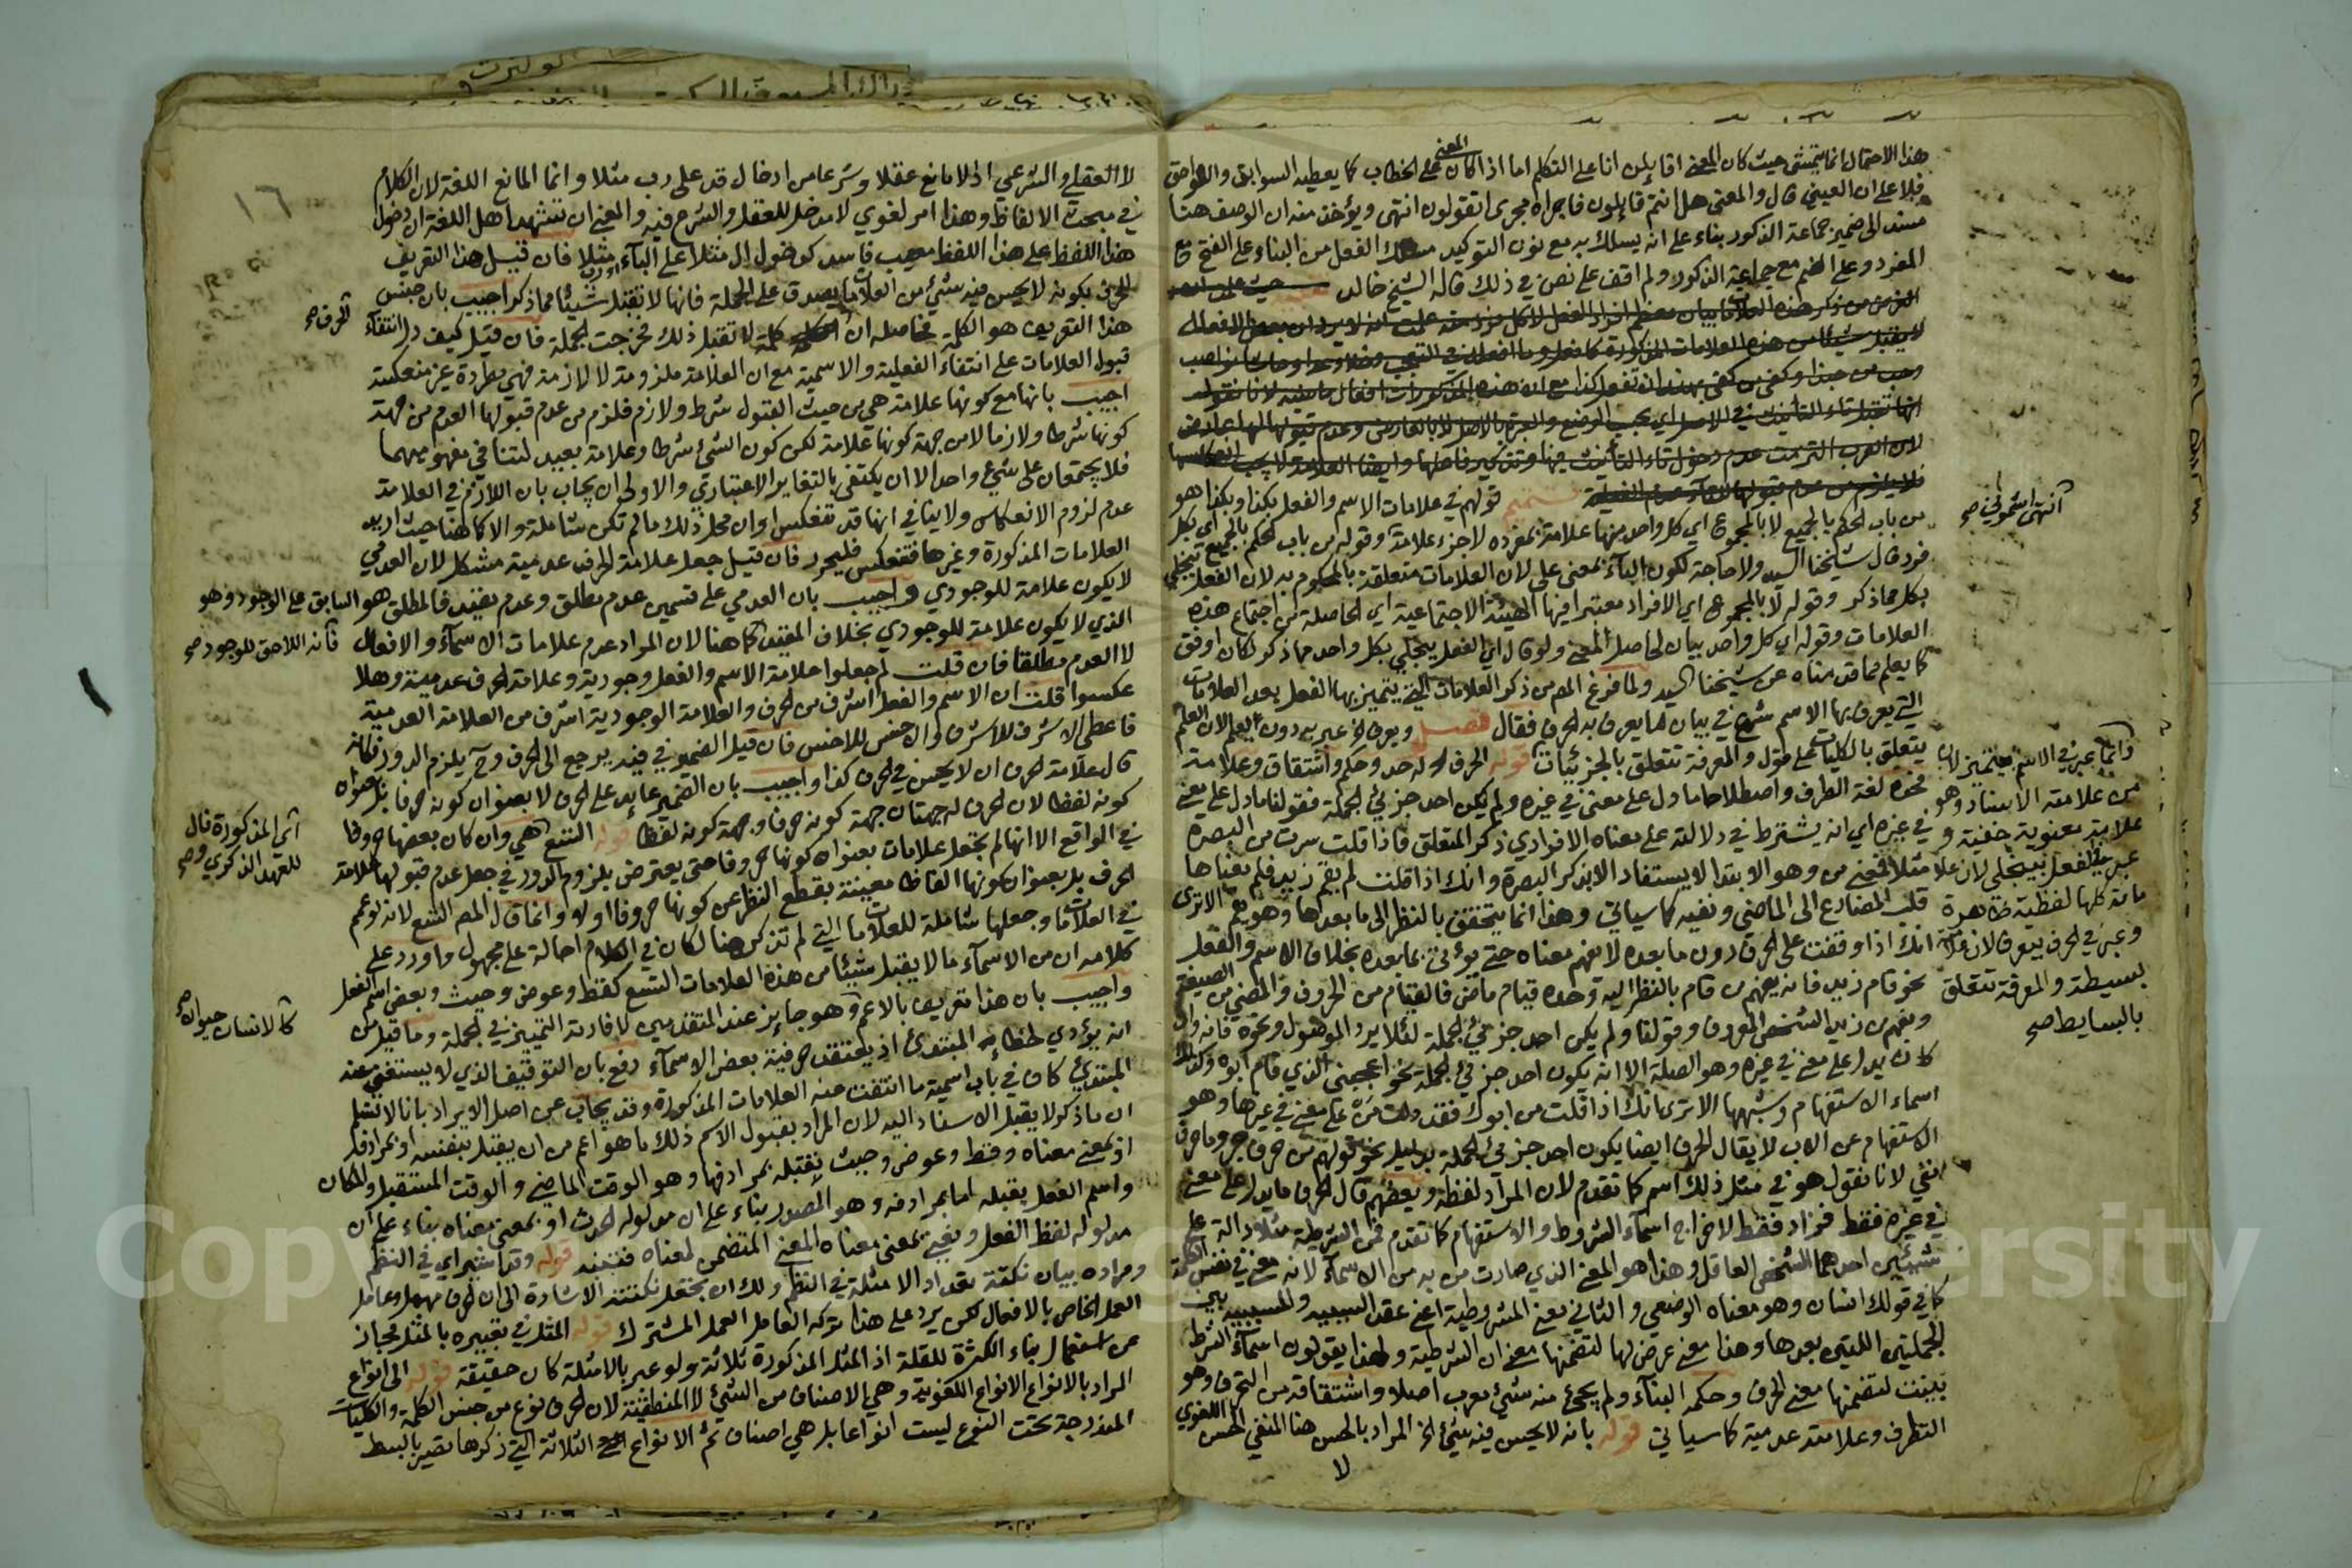 هذا الاحتمال انما يتمشى حيث كان المعنى اقائلن انا على التكلم اما اذا كان المعنى على الخطاب كما يعطيه السوابق واللواحق
فلا على ان العيني قال والمعنى هل انتم قايلون فاجراه مجرى اتقولون انتهى ويؤخذ منه ان الوصف هنا
مسند الى ضمير جماعة الذكور بناء على انه يسلك به مع نون التوكيد مسلك الفعل من البناء على الفتح مع
المفرد وعلى الضم مع جماعة الذكور ولم اقف على نص في ذلك قاله الشيخ خالد
الغرض من ذكر هذه العلامات بيان
لا يقبل شيئا من هذه العلامات المذكورة
انها تقبل تاء التأنيث في الاصل اي بحسب الوضع والعبرة بالاصل لا بالعارض وعدم قبولها لها عارض
لان العرب التزمت عدم دخول تاء التأنيث فيها وتذكير فاعلها وايضا العلامة لا يجب انعكاسها
فلا يلزم من عدم قبولها التاء عدم الفعلية تتميم قولهم في علامات الاسم والفعل بكذا وبكذا هو
من باب الحكم بالجميع لا بالمجموع اي كل واحد منها علامة بمفرده لا جزء علامة وقوله من باب الحكم بالجميع اي بكل
فرد قال شيخنا السيد ولا حاجة لكون الباء بمعنى على لان العلامات متعلقة بالمحكوم به لان الفعل ينجلي
بكل مما ذكر وقوله لا بالمجموع اي الافراد معتبرا فيها الهيئة الاجتماعية اي الحاصلة من اجتماع هذه
العلامات وقوله اي كل واحد بيان لحاصل المعنى ولو قال اي الفعل ينجلي بكل واحد مما ذكر لكان اوفق
كما يعلم مما قدمناه عن شيخنا السيد ولما فرغ المص من ذكر العلامات التي يتميز بها الفعل بعد العلامات
التي يعرف بها الاسم شرع في بيان ما يعرف به الحرف فقال فصل ويعرف الخ عبر به دون يعلم لان العلم
يتعلق بالكليات على قول والمعرفة تتعلق بالجزئيات قوله الحرف له حد وحكم واشتقاق وعلامة
فحده لغة الطرف واصطلاحا ما دل على معنى في غيره ولم يكن احد جزئي الجملة فقولنا ما دل على معنى
في غيره اي انه يشترط في دلالته على معناه الافرادي ذكر المتعلق فاذا قلت سرت من البصرة
مثلا فمعنى من وهو الابتدا لا يستفاد الا بذكر البصرة وانك اذا قلت لم يقم زيد فلم معناها
قلب المضارع الى الماضي ونفيه كما سياتي وهذا انما يتحقق بالنظر الى ما بعدها وهو يقم الا ترى
انك اذا وقفت على الحرف دون ما بعده لا تفهم معناه حتى يؤتى بما بعده بخلاف الاسم والفعل
نحو قام زيد فانه يفهم من قام بالنظر اليه وحده قيام ماض فالقيام من الحروف والمضي من الصيغة
ويفهم من زيد الشخص المعروف وقولنا ولم يكن احد جزئي الجملة لئلا يرد الموصول ونحوه فانه وان
كان يدل على معنى في غيره وهو الصلة الا انه يكون احد جزئي الجملة نحو اعجبني الذي قام ابوه وكذلك
اسماء الاستفهام وشبهها الا ترى انك اذا قلت من ابوك فقد دلت من على معنى في غيرها وهو
الاستفهام عن الاب لا يقال الحرف ايضا يكون احد جزئي الجملة بدليل نحو قولهم من حرف جر وما حرف
نفي لانا نقول هو في مثل ذلك اسم كما تقدم لان المراد لفظه وبعضهم قال الحرف ما يدل على معنى
في غيره فقط فزاد فقط لاخراج اسماء الشروط والاستفهام كما تقدم فمن الشرطية مثلا دالة على
شيئين احدهما الشخص العاقل وهذا هو المعنى الذي صارت من به من الاسماء لانه معنى في نفس الكلمة
كما في قولك انسان وهو معناه الوضعي والثاني معنى الشرطية اعني عقد السببية والمسببية بين
الجملتين اللتين بعدها وهذا معنى عرض لها لتضمنها معنى ان الشرطية ولهذا يقولون اسماء الشرط
بنيت لتضمنها معنى الحرف وحكمه البناء ولم يجئ منه شيء معرب اصلا واشتقاقه من التحرف وهو
التطرف وعلامته عدمية كما سياتي قوله بانه لا يحسن فيه شيء الخ المراد بالحسن هنا المنفي الحسن اللغوي
لا
انتهى اشموني صح
وانما عبر في الاسم بيتميز لان
من علامته الاسناد وهو
علامة معنوية خفية و
عبر في الفعل بينجلي لان علا
ماته كلها لفظية ظاهرة
وعبر في الحرف بيعرف لان علامته
بسيطة والمعرفة تتعلق
بالبسايط صح
١٦
لا العقلي والشرعي اذ لا مانع عقلا وشرعا من ادخال قد على رب مثلا وانما المانع اللغة لان الكلام
في مبحث الالفاظ وهذا امر لغوي لا مدخل للعقل والشرع فيه والمعنى ان تستشهد اهل اللغة ان دخول
هذا اللفظ على هذا اللفظ معيب فاسد كدخول ال مثلا على الباء مثلا فان قيل هذا التعريف
للحرف بكونه لا يحسن فيه شيء من العلامات يصدق على الجملة فانها لا تقبل شيئا مما ذكر اجيب بان جنس
هذا التعريف هو الكلمة فحاصله ان الحرف كلمة لا تقبل ذلك فخرجت الجملة فان قيل كيف دل انتفاء
قبول العلامات على انتفاء الفعلية والاسمية مع ان العلامة ملزومة لا لازمة فهي مطردة غير منعكسة
اجيب بانها مع كونها علامة هي من حيث القبول شرط ولازم فلزم من عدم قبولها العدم من جهة
كونها شرطا ولازما لا من جهة كونها علامة لكن كون الشيء شرطا وعلامة بعيد لتنافي مفهوميهما
فلا يجتمعان على شيء واحد الا ان يكتفى بالتغاير الاعتباري والاولى ان يجاب بان اللازم في العلامة
عدم لزوم الانعكاس ولا ينافي انها قد تنعكس او ان محل ذلك ما لم تكن شاملة والا كما هنا حيث اريد
العلامات المذكورة وغيرها فتنعكس فليحرر فان قيل جعل علامة الحرف عدمية مشكل لان العدمي
لا يكون علامة للوجودي واجيب بان العدمي على قسمين عدم مطلق وعدم مقيد فالمطلق هو السابق على الوجود وهو
الذي لا يكون علامة للوجودي بخلاف المقيد كما هنا لان المراد عدم علامات الاسماء والافعال
لا العدم مطلقا فان قلت لم جعلوا علامة الاسم والفعل وجودية وعلامة الحرف عدمية وهلا
عكسوا قلت ان الاسم والفعل اشرف من الحرف والعلامة الوجودية اشرف من العلامة العدمية
فاعطي الاشرف للاشرف والاخس للاخس فان قيل الضمير في فيه يرجع الى الحرف وح يلزم الدور فكانه
قال علامة الحرف ان لا يحسن في الحرف كذا واجيب بان الضمير عايد على الحرف لا بعنوان كونه حرفا بل بعنوان
كونه لفظا لان الحرف له جهتان جهة كونه حرفا وجهة كونه لفظا قوله التسع هي وان كان بعضها حروفا
في الواقع الا انها لم تجعل علامات بعنوان كونها حروفا حتى يعترض بلزوم الدور في جعل عدم قبولها علامة
الحرف بل بعنوان كونها الفاظا معينة بقطع النظر عن كونها حروفا او لا وانما قال المص التسع لانه لو عمم
في العلامات وجعلها شاملة للعلامات التي لم تذكر هنا لكان في الكلام احالة على مجهول واورد على
كلامه ان من الاسماء ما لا يقبل شيئا من هذه العلامات التسع كقط وعوض وحيث وبعض اسم الفعل
واجيب بان هذا تعريف بالاعم وهو جايز عند المتقدمين لافادته التمييز في الجملة وما قيل من
انه يؤدي لخطاء المبتدي اذ يعتقد حرفية بعض الاسماء دفع بان التوقيف الذي لا يستغني عنه
المبتدي كاف في باب اسمية ما انتفت عنه العلامات المذكورة وقد يجاب عن اصل الايراد بانا لا نسلم
ان ما ذكر لا يقبل الاسناد اليه لان المراد بقبول الاسم ذلك ما هو اعم من ان يقبل بنفسه او بمرادفه
او بمعنى معناه وقط وعوض وحيث يقبله بمرادفها وهو الوقت الماضي والوقت المستقبل والمكان
واسم الفعل يقبله اما بمرادفه وهو المصدر بناء على ان مدلوله الحدث او بمعنى معناه بناء على ان
مدلوله لفظ الفعل ونعني بمعنى معناه المعنى المتضمن لمعناه فتنبه قوله وقد اشير اي في النظم
ومراده بيان نكتة تعداد الامثلة في النظم ولك ان تجعل نكتته الاشارة الى ان الحرف مهمل وعامل
العمل الخاص بالافعال لكن يرد على هذا تركه العامل العمل المشترك قوله المثل في تعبيره بالمثل مجاز
من استعمال بناء الكثرة للقلة اذ المثل المذكورة ثلاثة ولو عبر بالامثلة كان حقيقة قوله الى انواع
المراد بالانواع الانواع اللغوية وهي الاصناف من الشيء لا المنطقية لان الحرف نوع من جنس الكلمة والكليات
المندرجة تحت النوع ليست انواعا بل هي اصناف ثم الانواع الثلاثة التي ذكرها تصير بالبسط
الحرف صح
فانه اللاحق للوجود صح
اي المذكورة فال
للعهد الذكري صح
كالانسان حيوان صح